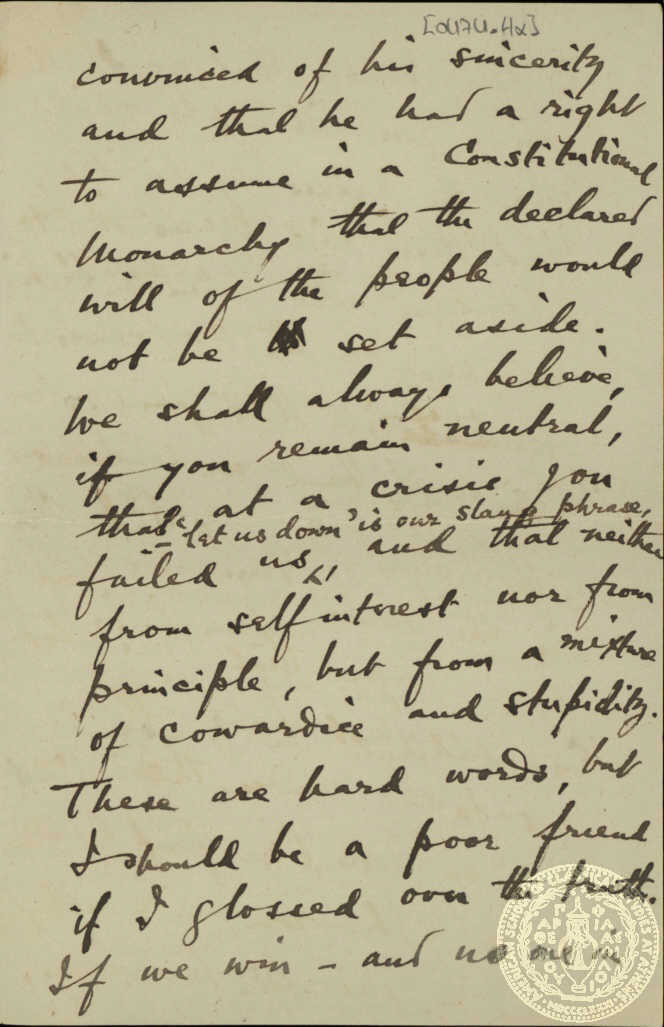 convinced of his sincerity
and that he had a right
to assume in a Constitutional
Monarchy that the declared
will of the people would
not be set aside.
We shall always believe,
if you remain neutral,
that at a crisis you
– "let us down" is our slang phrase,
failed us, and that neither
from self interest nor from
principle, but from a mixture
of cowardice and stupidity.
These are hard words, but
I should be a poor friend
if I glossed over the truth.
If we win – and no one in